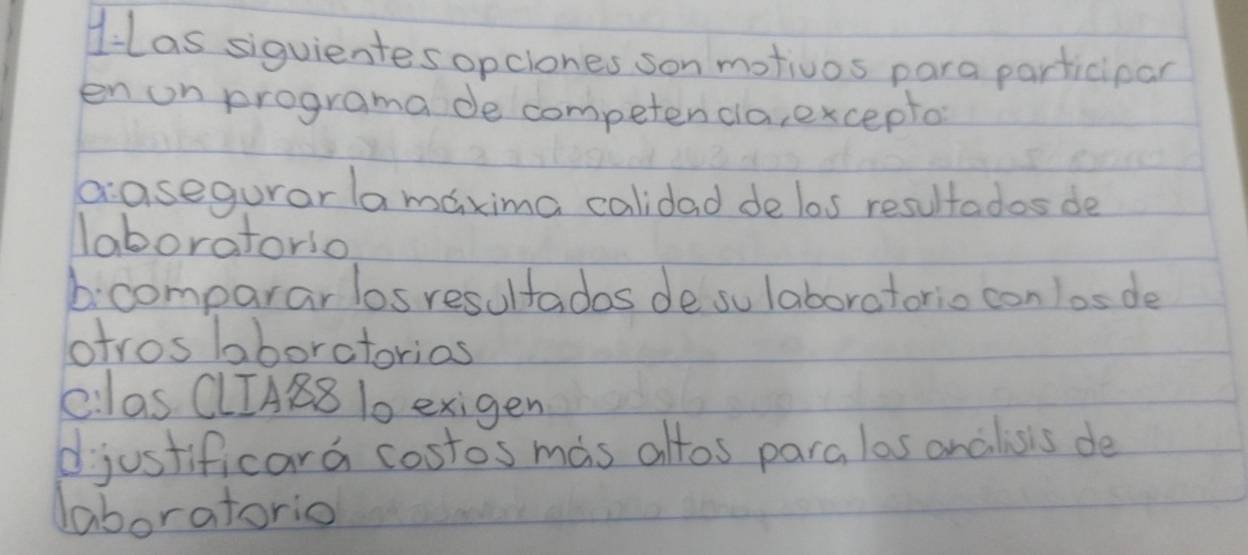 1-Las siguientes opciones son motivos para participar
en un programa de competencia, excepto:
a: asegurar la máxima calidad de los resultados de
laboratorio
b: comparar los resultados de su laboratorio con los de
otros laboratorios
c: las CLIA88 lo exigen
d: justificará costos más altos para los análisis de
laboratorio